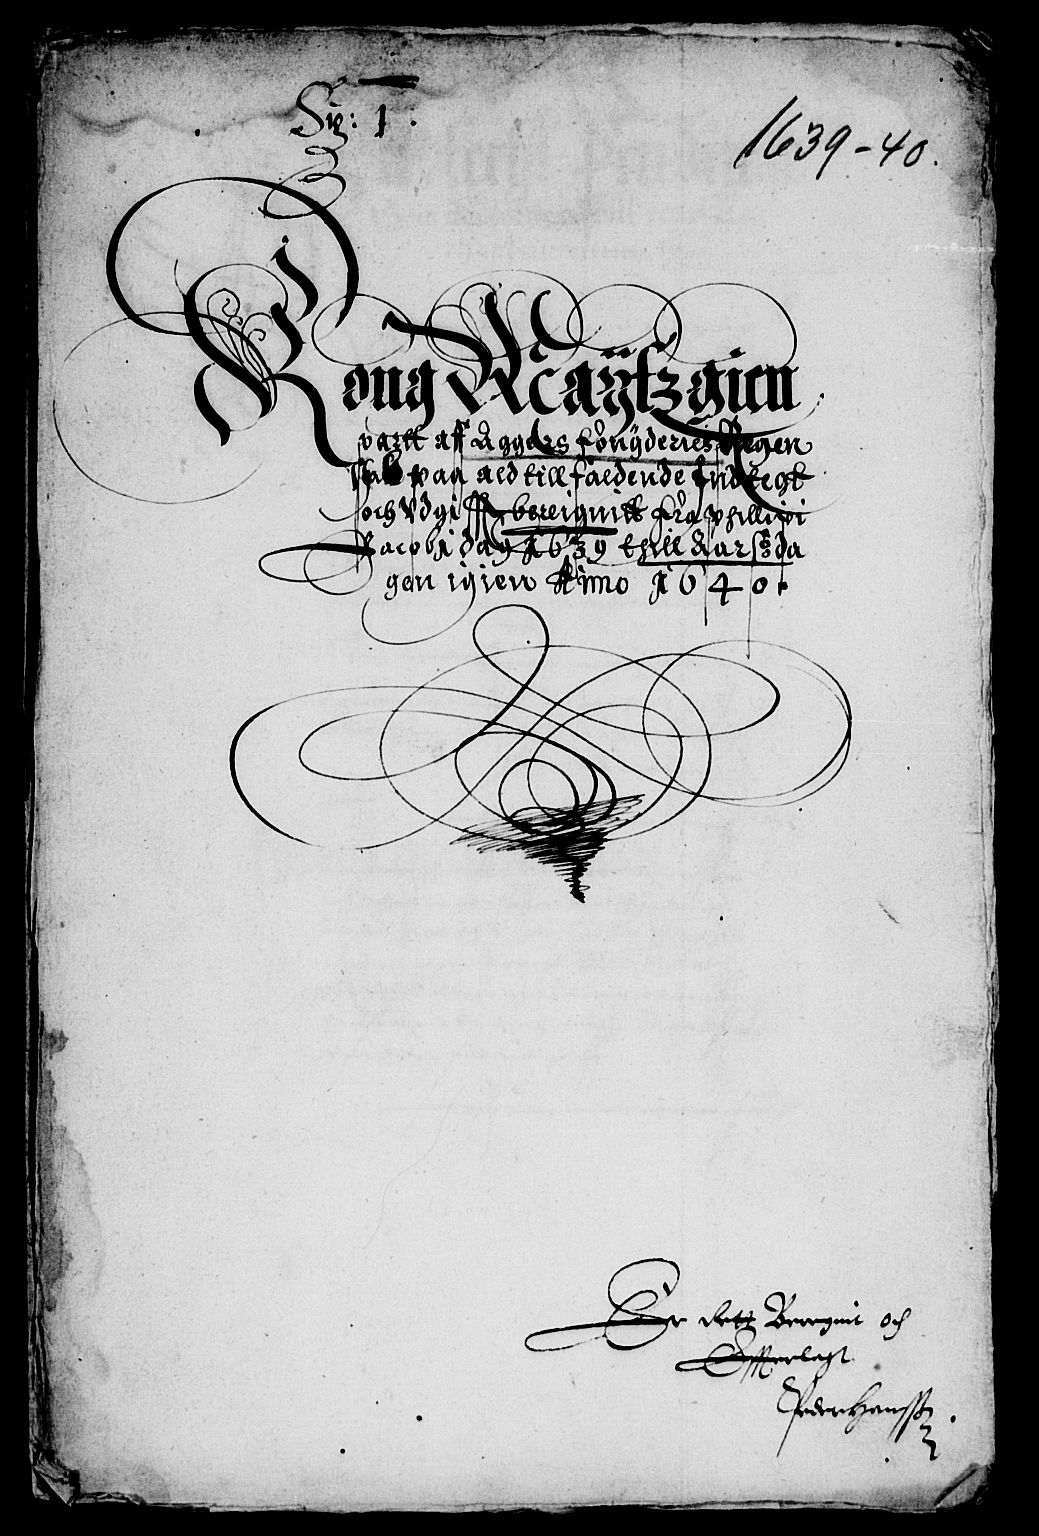 Sig: 1.
1639-40.
Kong Maÿtz gien
partt aff Aggers fougderies Regen
skab paa ald till faldende Indtegt
och Vdgifft bereignitt fra Phillipi
Jacobi dag 1639 thill Aarssda
gen igien Anno 1640.
Er dett Beregnit och
Offuerlagt
Peder Hanssen